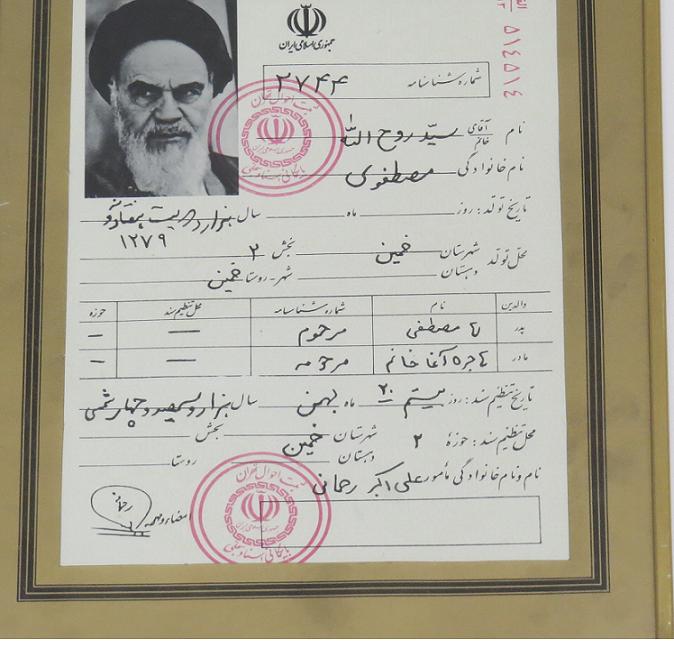 جمهوری اسلامی ایران
۵۱۴۵۱۴
شماره شناسنامه ۲۷۴۴
نام آقای خانم سید روح الله
نام خانوادگی مصطفوی
تاریخ تولد: روز ماه سال هزار و دویست هفتاد و نه
۱۲۷۹
محل تولد شهرستان خمین بخش ۲
دهستان شهر-روستا خمین
والدین نام شماره شناسنامه محل تنظیم سند حوزه
پدر مصطفی مرحوم — —
مادر هاجر آغا خانم مرحومه — —
تاریخ تنظیم سند: روز بیستم ۲۰ ماه بهمن سال هزار و سیصد و چهار شمسی
محل تنظیم سند: حوزه ۲ شهرستان خمین بخش
دهستان روستا
نام و نام خانوادگی مأمور علی اکبر رحمانی
امضاء و مهر